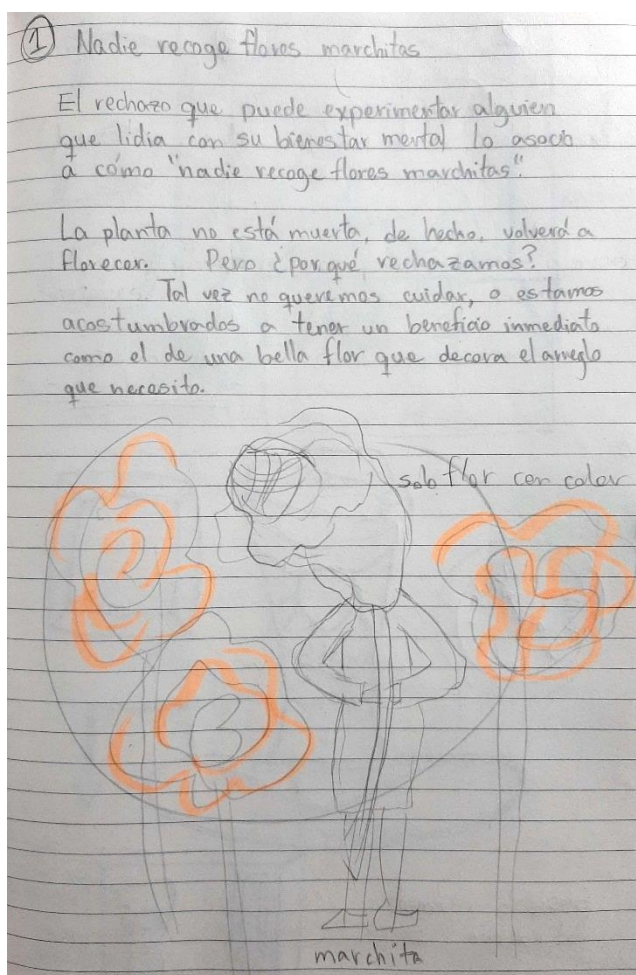 1 Nadie recoge flores marchitas
El rechazo que puede experimentar alguien
que lidia con su bienestar mental lo asocio
a cómo "nadie recoge flores marchitas".
La planta no está muerta, de hecho, volverá a
florecer. Pero ¿por qué rechazamos?
Tal vez no queremos cuidar, o estamos
acostumbrados a tener un beneficio inmediato
como el de una bella flor que decora el arreglo
que necesito.
solo flor con color
marchita